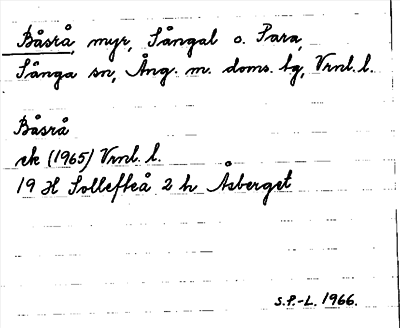 Båsrå, myr, Sångal o. Para,
Sånga sn, Ång. m. doms. hg, Vrnl. l.
Båsrå
ek (1965) Vrnl. l.
19 H Sollefteå 2 h Åsberget
S.P.-L. 1966.